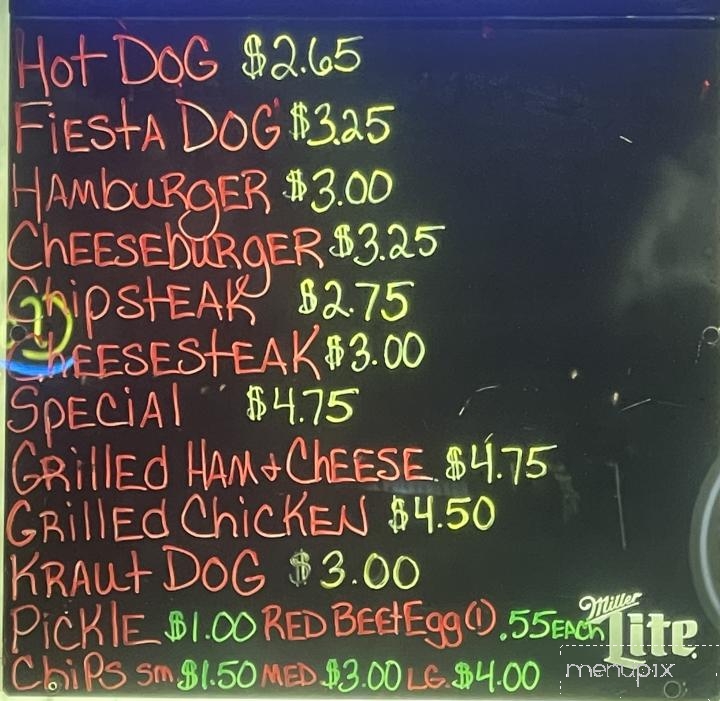 Hot Dog $2.65
Fiesta Dog $3.25
Hamburger $3.00
Cheeseburger $3.25
Chipsteak $2.75
Cheesesteak $3.00
Special $4.75
Grilled Ham + Cheese $4.75
Grilled Chicken $4.50
Kraut Dog $3.00
Pickle $1.00 Red Beet Egg (1) .55 each
Chips sm $1.50 med $3.00 Lg. $4.00
Miller
Lite
menupix